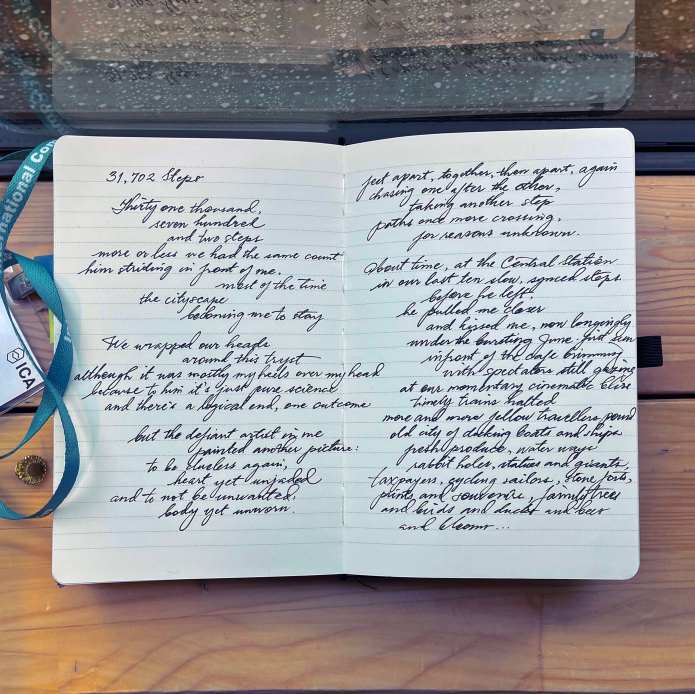 31,702 Steps
Thirty one thousand,
seven hundred
and two steps
more or less we had the same count
him striding in front of me,
most of the time
the cityscape
beckoning me to stay
We wrapped our heads
around this tryst
although it was mostly my heels over my head
because to him it's just pure science
and there's a logical end, one outcome
but the defiant artist in me
painted another picture:
to be clueless again,
heart yet unjaded
and to not be unwanted,
body yet unworn.
feet apart, together, then apart, again
chasing one after the other,
taking another step
paths once more crossing,
for reasons unknown.
About time, at the Central Station
in our last ten slow, synced steps
before he left:
he pulled me closer
and kissed me, now longingly
under the bursting June-first sun
in front of the cafe brimming
with spectators still gazing
at our momentary cinematic bliss
timely trains halted
more and more yellow travellers pound
old city of docking boats and ships
fresh produce, water ways
rabbit holes, statues and giants,
taxpayers, cycling sailors, stone forts,
plants and souvenirs, family trees
and birds and ducks and beer
and blooms...
rnational Con
ICA